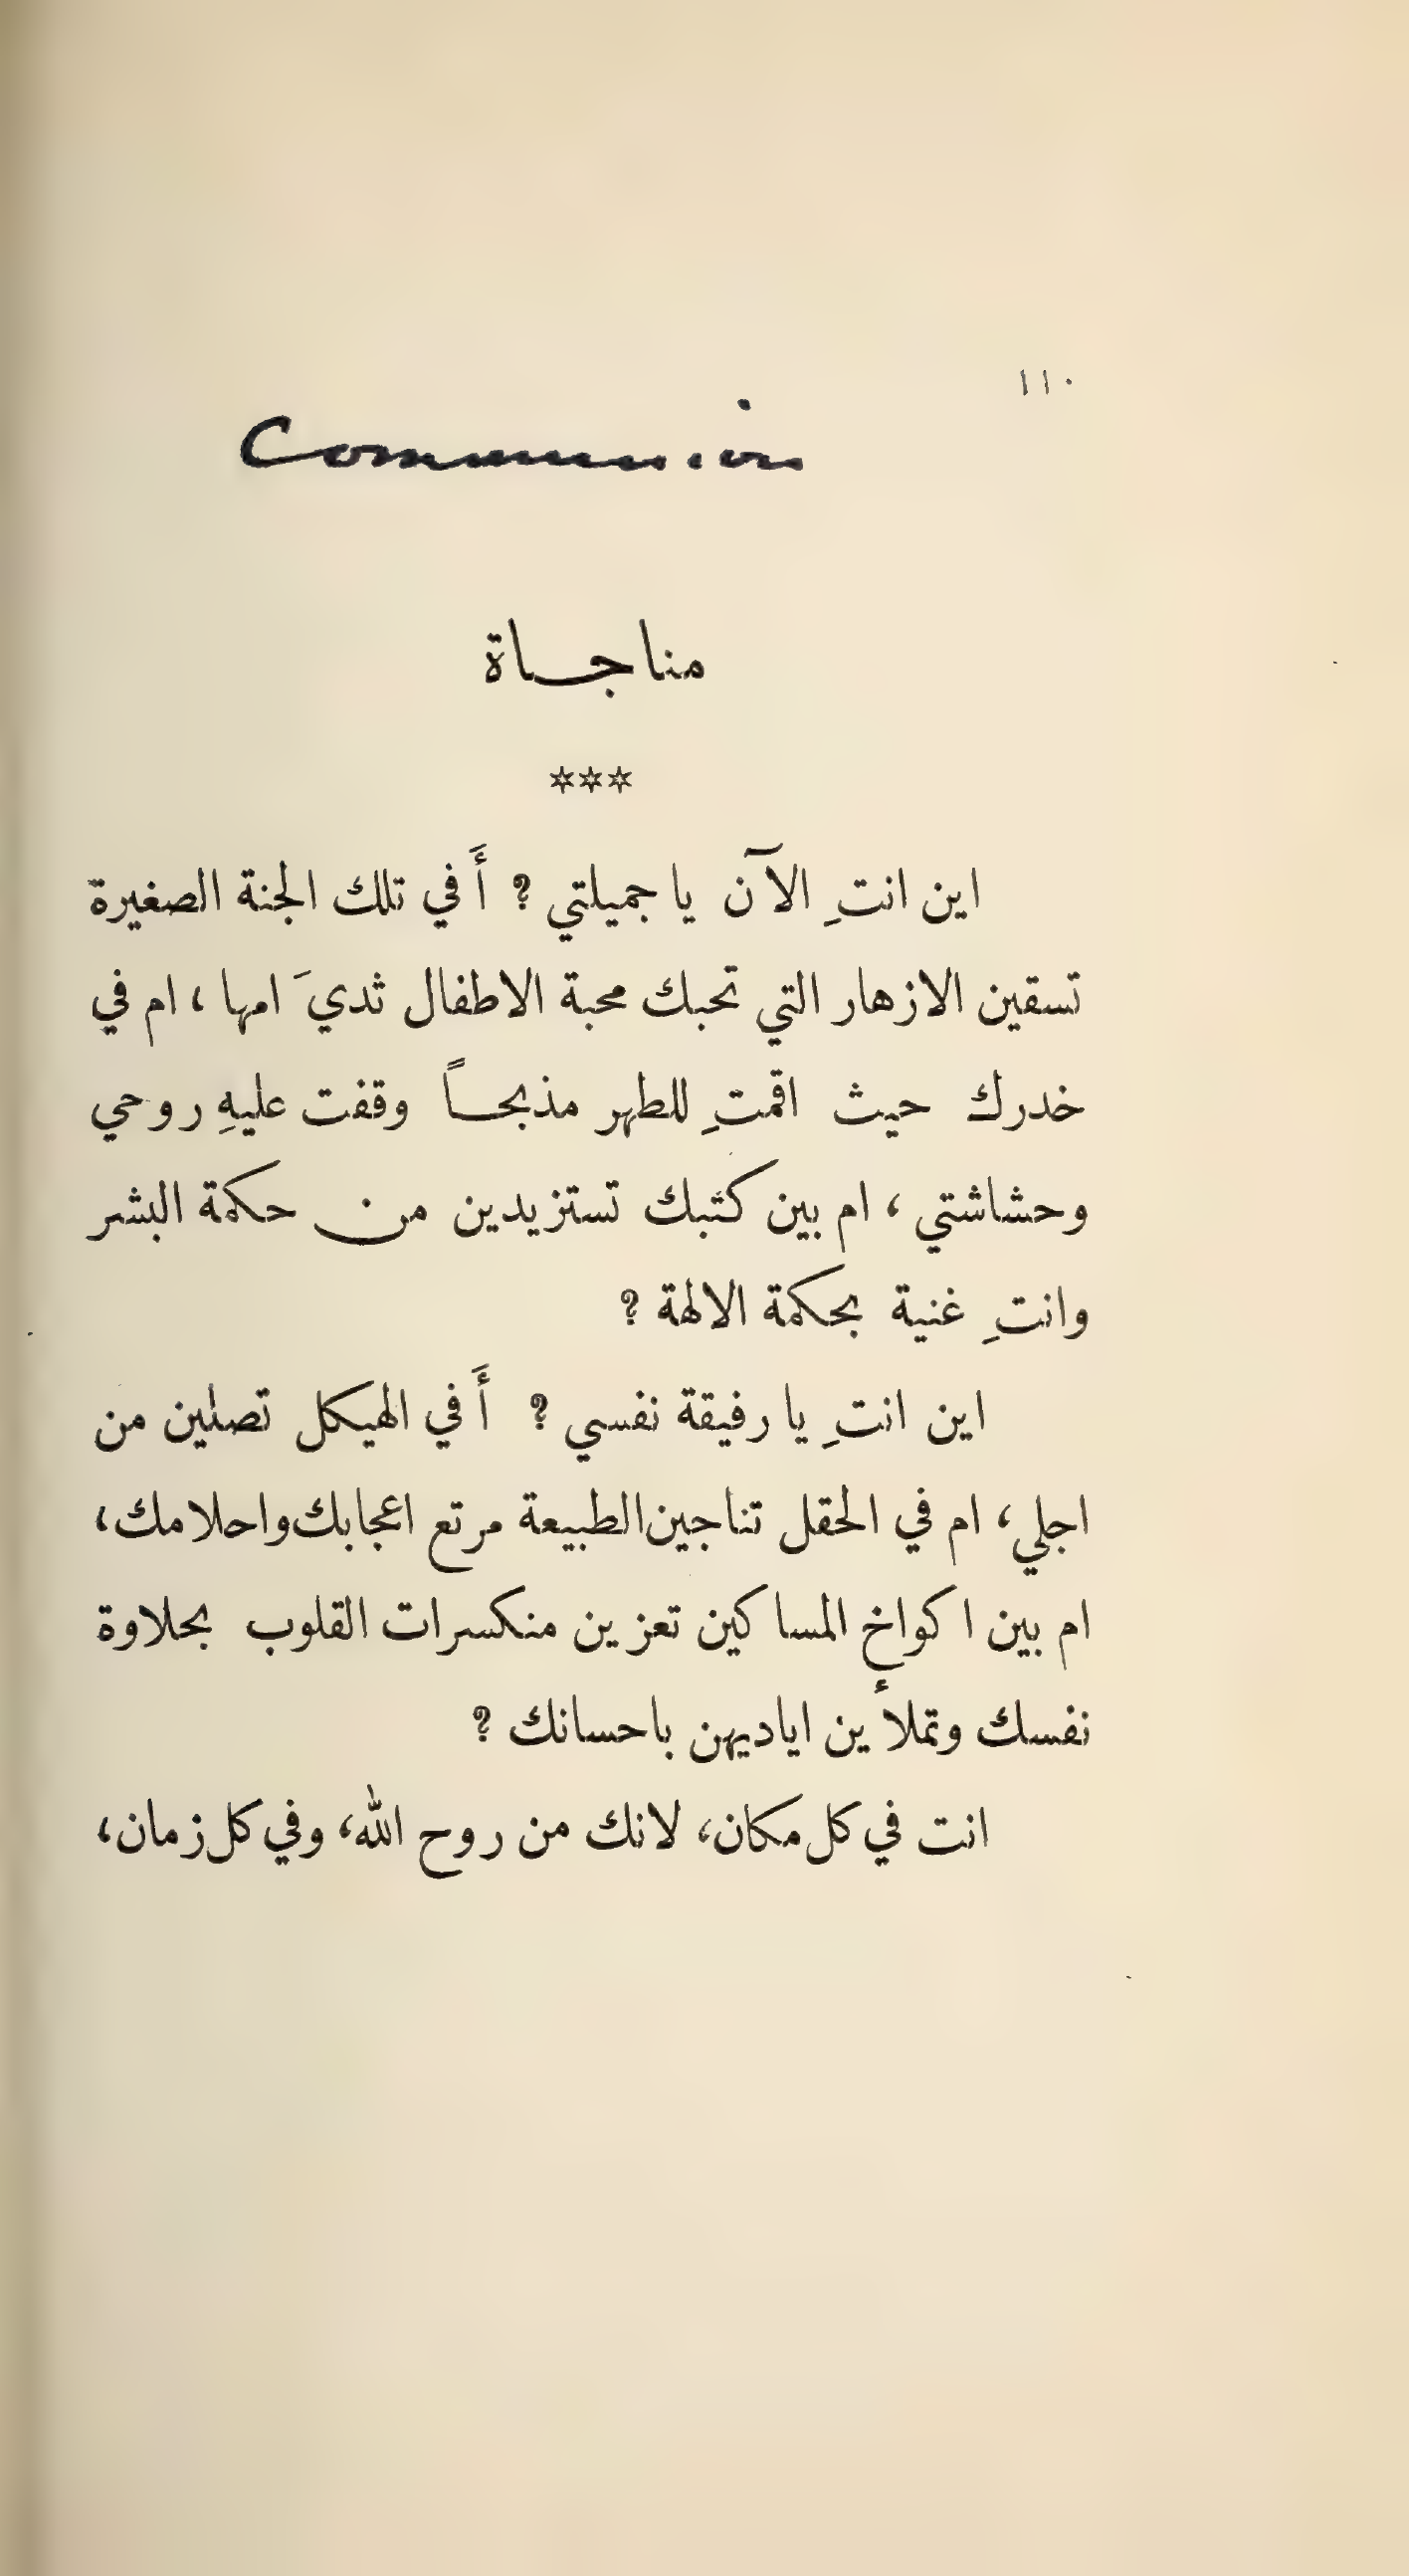 ١١٠
Communion
مناجاة
***
اين انتِ الآن يا جميلتي ؟ أَ في تلك الجنة الصغيرة
تسقين الازهار التي تحبك محبة الاطفال ثديَ امها ، ام في
خدرك حيث اقمتِ للطهر مذبحاً وقفت عليهِ روحي
وحشاشتي ، ام بين كتبك تستزيدين من حكمة البشر
وانتِ غنية بحكمة الالهة ؟
اين انتِ يا رفيقة نفسي ؟ أَ في الهيكل تصلين من
اجلي، ام في الحقل تناجين الطبيعة مرتع اعجابك واحلامك،
ام بين اكواخ المساكين تعزين منكسرات القلوب بحلاوة
نفسك وتملأين اياديهن باحسانك ؟
انت في كل مكان، لانك من روح الله، وفي كل زمان،